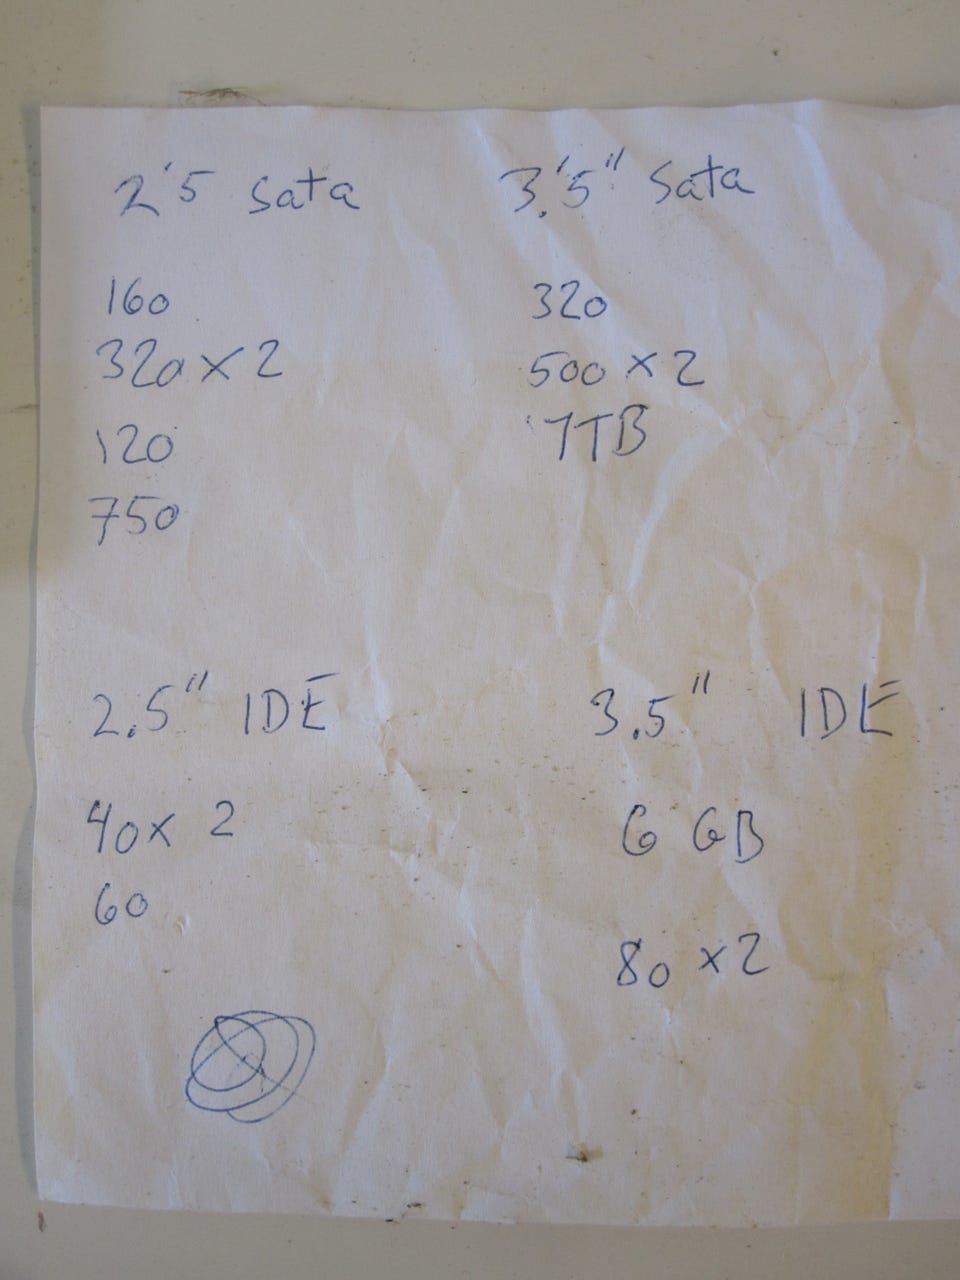 2'5 Sata
160
320 x 2
120
750
3.'5" Sata
320
500 x 2
1TB
2.5" IDE
40x 2
60
3.5" IDE
6 GB
80 x2